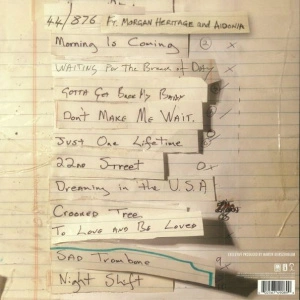 44/876 Ft Morgan Heritage and Aidonia
Morning Is Coming
Waiting for the Break of Day
Gotta Get Back My Baby
Don't Make Me Wait.
Just One Lifetime
22nd Street
Dreaming in the U.S.A
Crooked Tree
To Love and Be Loved
Sad Trombone
Night Shift